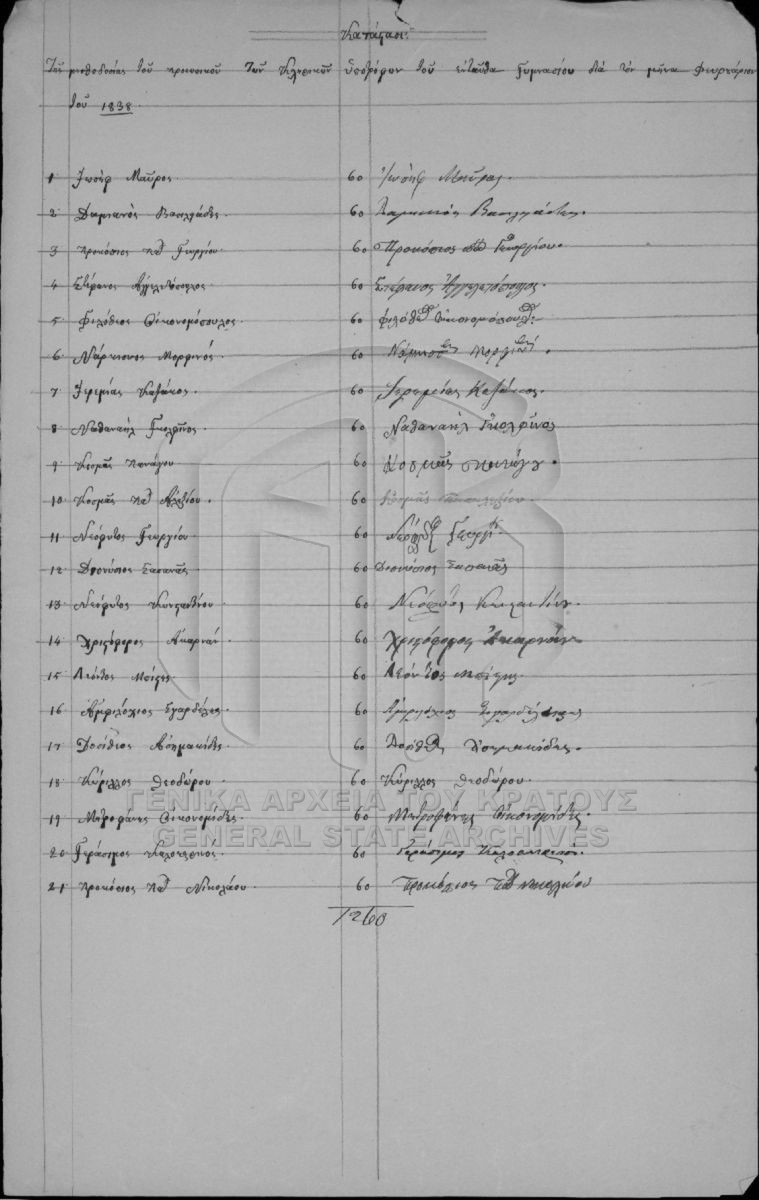 Κατάστασις
Τῆς μισθοδοσίας τοῦ προσωπικοῦ τῶν Κληρικῶν ὑποτρόφων τοῦ ἐνταῦθα Γυμνασίου διὰ τὸν μῆνα Φευρουάριον
τοῦ 1838.
1 Ἰωσὴφ Μαῦρος. 60 Ἰωσὴφ Μαῦρος.
2 Δαμιανὸς Βασιλειάδης. 60 Δαμιανὸς Βασιλειάδης.
3 Προκόπιος πὰ Γεωργίου 60 Προκόπιος πὰ Γεωργίου
4 Στέφανος Ἀγγελετόπουλος 60 Στέφανος Ἀγγελετόπουλος.
5 Φιλόθεος Οἰκονομόπουλος. 60 Φιλόθεος Οἰκονομόπουλος
6 Νάρκισσος Μορφινός. 60 Νάρκισσος Μορφινός.
7 Ἱερεμίας Καζάκος. 60 Ἱερεμίας Καζάκος.
8 Ναθαναὴλ Γκολφῖνος. 60 Ναθαναὴλ Γκολφῖνος
9 Κοσμᾶς Πανάγου 60 Κοσμᾶς Πανάγου.
10 Κοσμᾶς πὰ Ἀλεξίου. 60 Κοσμᾶς Ἀλεξίου.
11 Νεόφυτος Γεωργίου. 60 Νεόφυτος Γεωργίου
12 Διονύσιος 60 Διονύσιος
13 Νεόφυτος Κωνσταντίνου 60 Νεόφυτος Κωνσταντίνου.
14 Χριστόφορος Ἀκαρνάν. 60 Χριστόφορος Ἀκαρνάν
15 Λεόντιος 60 Λεόντιος
16 Ἀμφιλόχιος Σγαρδέλης. 60 Ἀμφιλόχιος Σγαρδέλης
17 Δοσίθεος Ἀσημακίδης. 60 Δοσίθεος Ἀσημακίδης.
18 Κύριλλος Θεοδώρου. 60 Κύριλλος Θεοδώρου.
19 Μητροφάνης Οἰκονομίδης. 60 Μητροφάνης Οἰκονομίδης.
20 Γεράσιμος 60 Γεράσιμος
21 Προκόπιος πὰ Νικολάου. 60 Προκόπιος πὰ Νικολάου
1260
ΓΕΝΙΚΑ ΑΡΧΕΙΑ ΤΟΥ ΚΡΑΤΟΥΣ
GENERAL STATE ARCHIVES